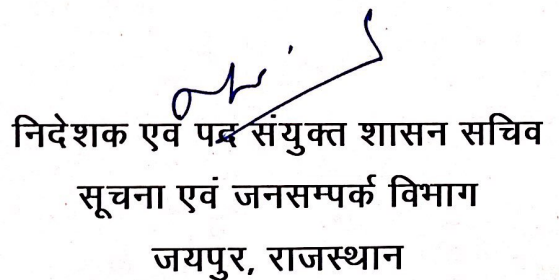 निदेशक एवं पद संयुक्त शासन सचिव
सूचना एवं जनसम्पर्क विभाग
जयपुर, राजस्थान